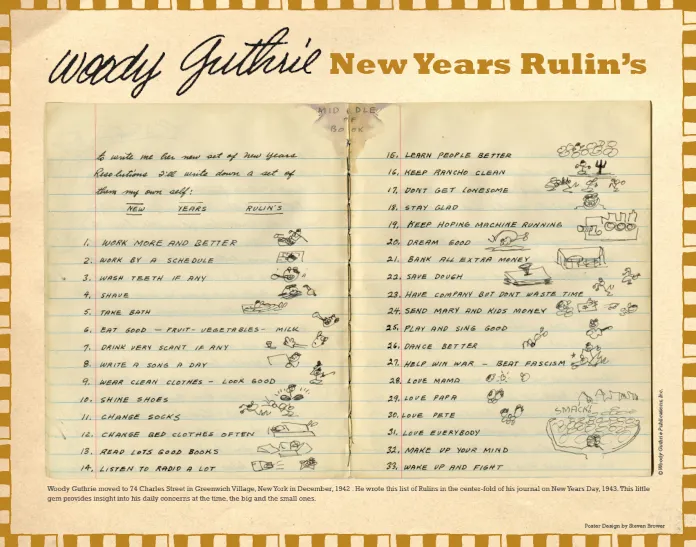 Woody Guthrie New Years Rulin's
MIDDLE
OF
BOOK
to write me her new set of New Years
Resolutions I'll write down a set of
them my own self:
NEW YEARS RULIN'S
1. WORK MORE AND BETTER
2. WORK BY A SCHEDULE
3. WASH TEETH IF ANY
4. SHAVE
5. TAKE BATH
6. EAT GOOD — FRUIT - VEGETABLES - MILK
7. DRINK VERY SCANT IF ANY
8. WRITE A SONG A DAY
9. WEAR CLEAN CLOTHES — LOOK GOOD
10. SHINE SHOES
11. CHANGE SOCKS
12. CHANGE BED CLOTHES OFTEN
13. READ LOTS GOOD BOOKS
14. LISTEN TO RADIO A LOT
15. LEARN PEOPLE BETTER
16. KEEP RANCHO CLEAN
17. DONT GET LONESOME
18. STAY GLAD
19. KEEP HOPING MACHINE RUNNING
20. DREAM GOOD
21. BANK ALL EXTRA MONEY
22. SAVE DOUGH
23. HAVE COMPANY BUT DONT WASTE TIME
24. SEND MARY AND KIDS MONEY
25. PLAY AND SING GOOD
26. DANCE BETTER
27. HELP WIN WAR — BEAT FASCISM
28. LOVE MAMA
29. LOVE PAPA
30. LOVE PETE
31. LOVE EVERYBODY
32. MAKE UP YOUR MIND
33. WAKE UP AND FIGHT
SMACK!
© Woody Guthrie Publications, Inc.
Woody Guthrie moved to 74 Charles Street in Greenwich Village, New York in December, 1942. He wrote this list of Rulins in the center-fold of his journal on New Years Day, 1943. This little
gem provides insight into his daily concerns at the time, the big and the small ones.
Poster Design by Steven Brower